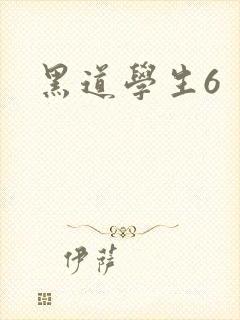 黑道學生6
伊薩